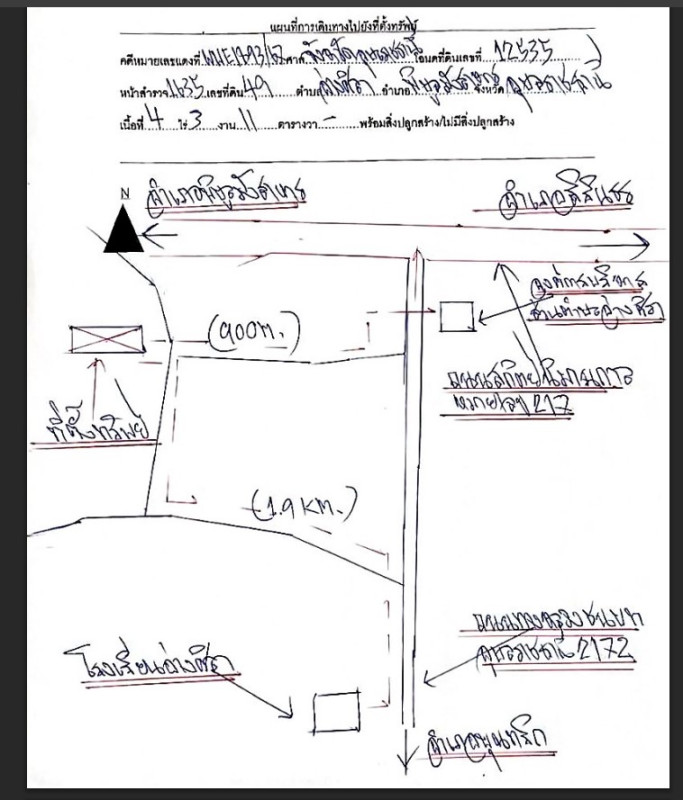 แผนที่การเดินทางไปยังที่ตั้งทรัพย์
คดีหมายเลขแดงที่ ศาล จังหวัดอุบลราชธานี โฉนดที่ดินเลขที่ 12535
หน้าสำรวจ 1635 เลขที่ดิน 49 ตำบล อ่างศิลา อำเภอ พิบูลมังสาหาร จังหวัด อุบลราชธานี
เนื้อที่ 4 ไร่ 3 งาน 11 ตารางวา - พร้อมสิ่งปลูกสร้าง/ไม่มีสิ่งปลูกสร้าง
N
อำเภอพิบูลมังสาหาร
อำเภอสิรินธร
องค์การบริหาร
ส่วนตำบลอ่างศิลา
(900m.)
ถนนสถิตย์นิมานการ
หมายเลข 217
ที่ตั้งทรัพย์
(1.9 KM.)
ถนนทางหลวงชนบท
อุบลราชธานี 2172
โรงเรียนอ่างศิลา
อำเภอบุณฑริก